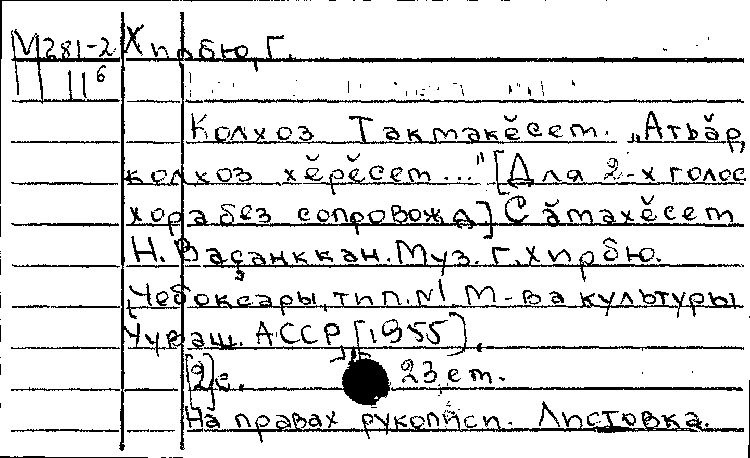 М281-2 Хирбю, Г.
11⁶
Колхоз Такмакĕсем. „Атьăр,
колхоз хĕрĕсем..." [Для 2-х голос
хора без сопровожд.] Сăмахĕсем
Н. Ваçанккан. Муз. Г. Хирбю.
[Чебоксары, тип. №1 М-ва культуры
Чуваш. АССР, [1955].
[2]с. 23 см.
На правах рукописи. Листовка.